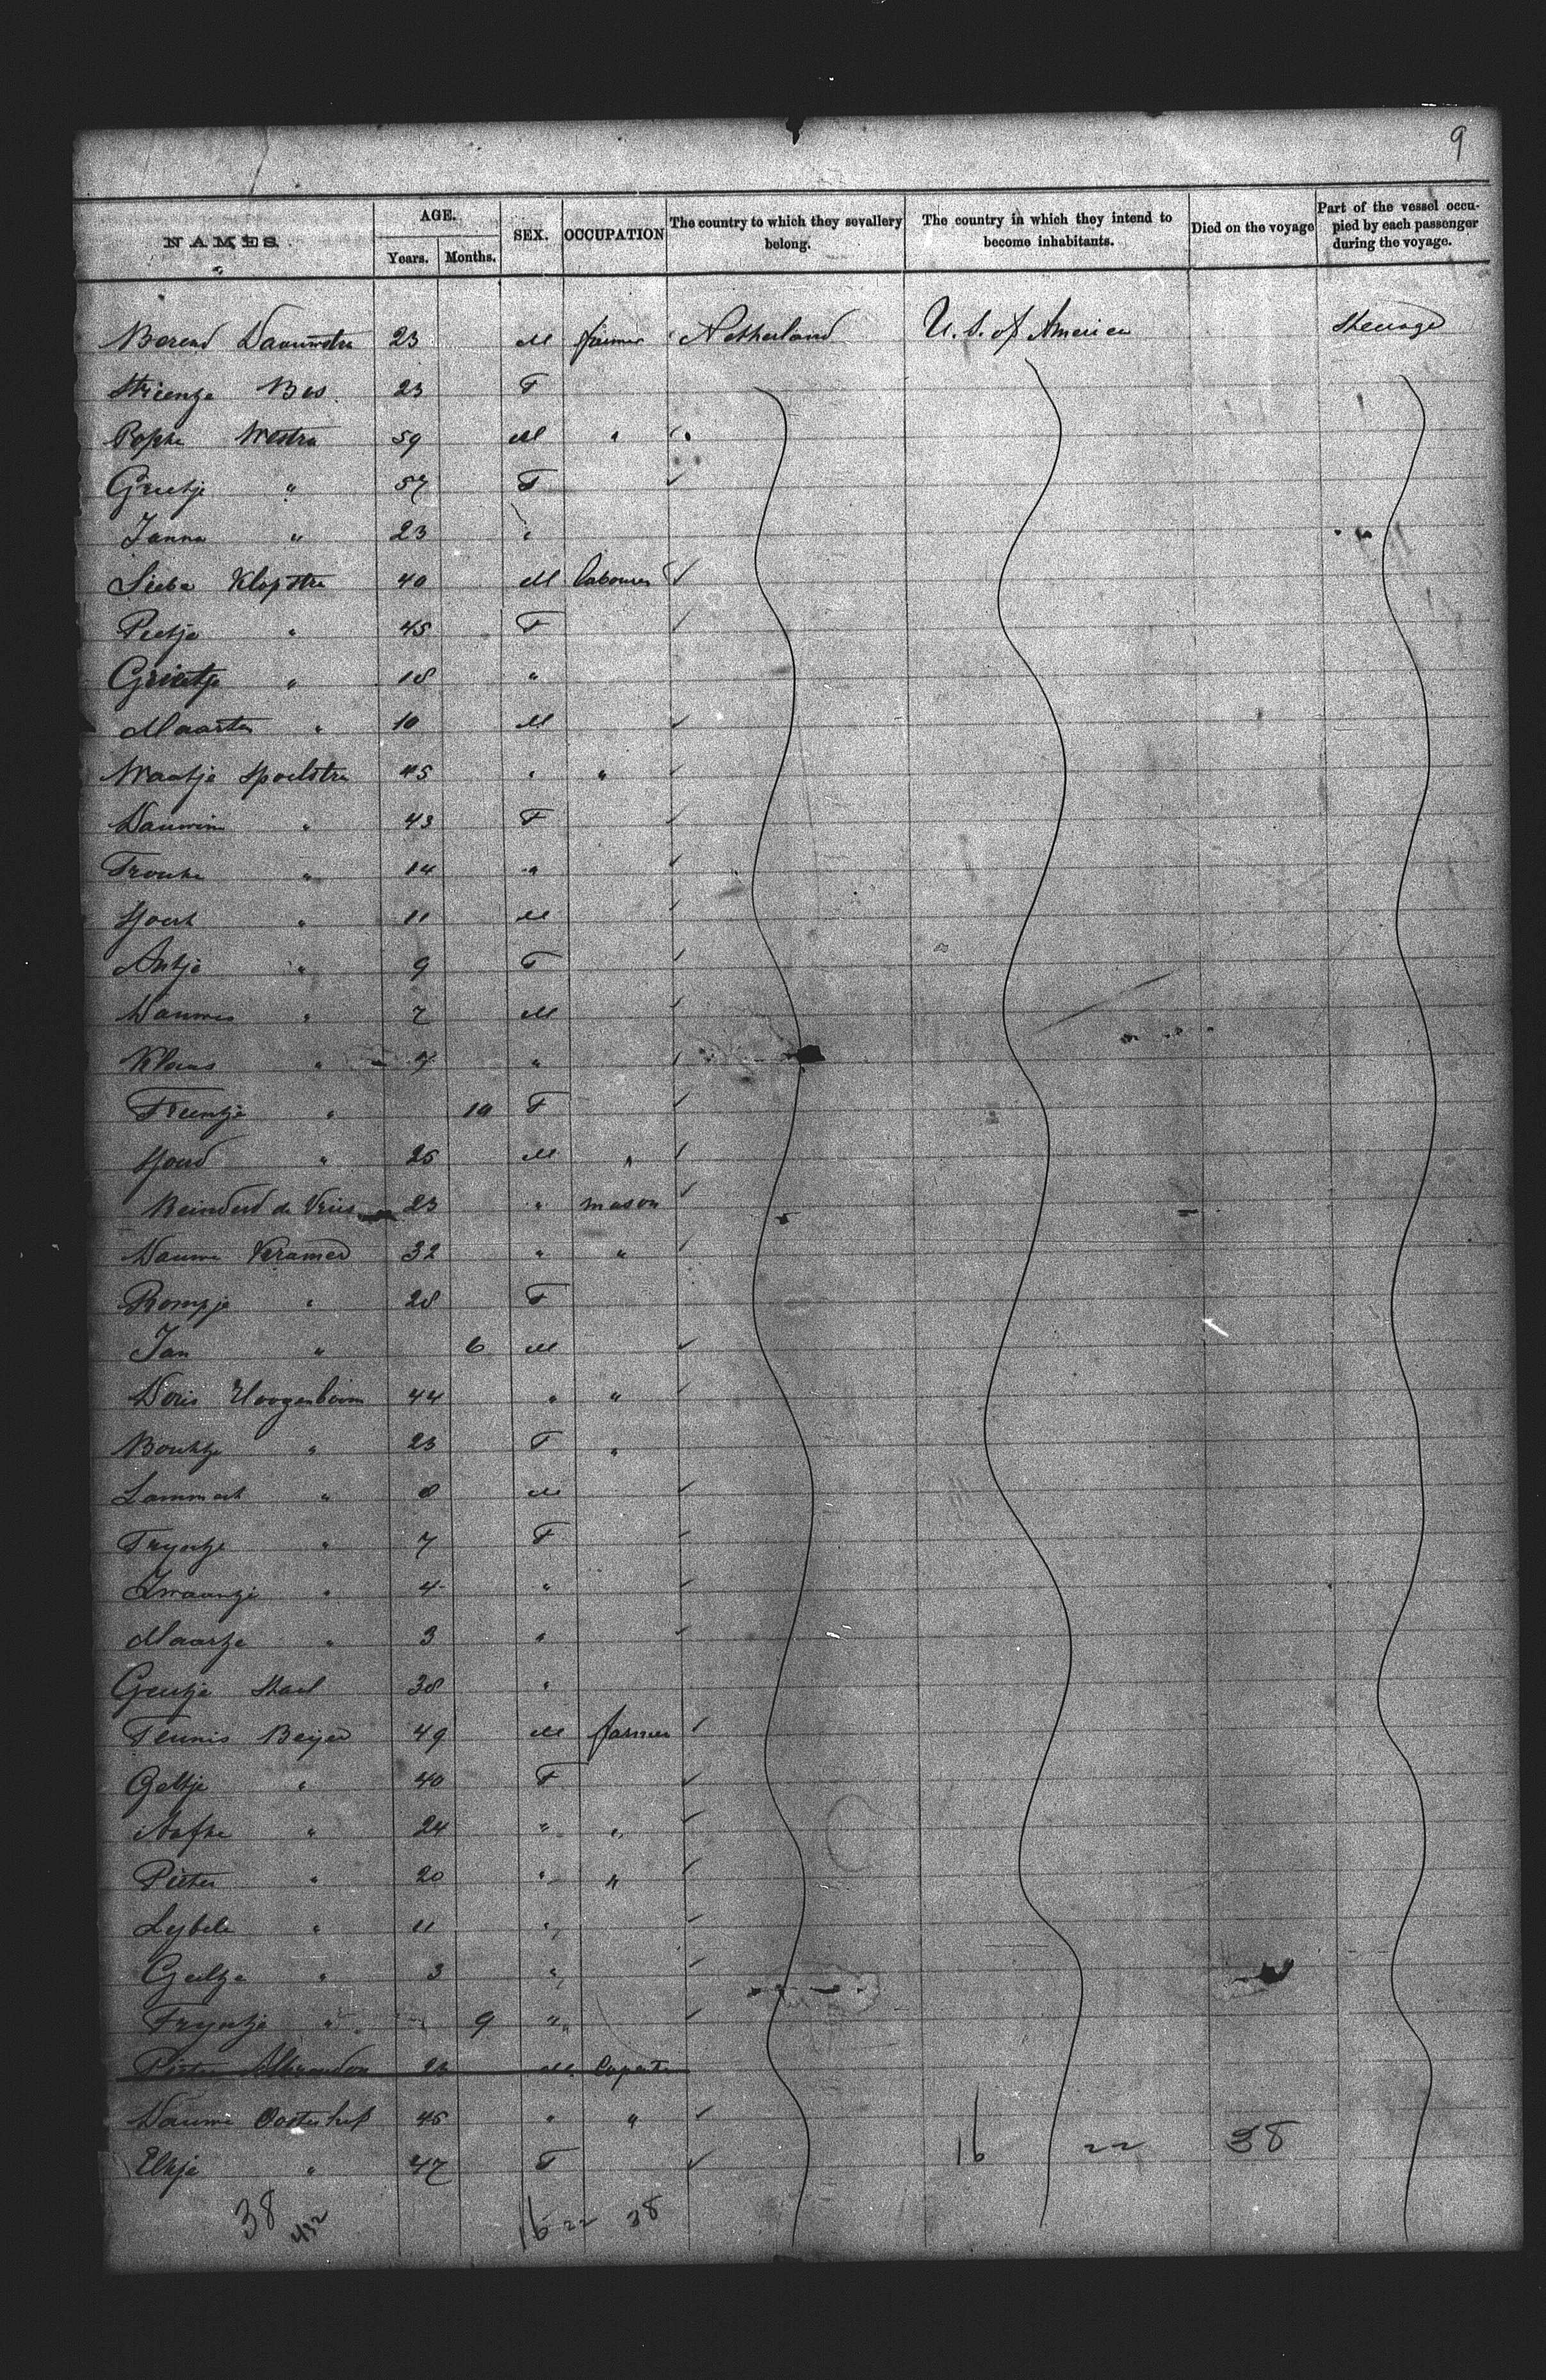 9
NAMES. AGE. Years. Months. SEX. OCCUPATION The country to which they sevallery belong. The country in which they intend to become inhabitants. Died on the voyage Part of the vessel occupied by each passenger during the voyage.
Berend 23 M farmer Netherland U. S. of America Steerage
Bos 23 F
Popke Westra 59 M "
Grietje " 57 F
Janna " 23 "
Sieba Klopstra 40 M labourer
Pietje " 45 F
Grietje " 18 "
Maarten " 10 M
Spoelstra 45 " "
" 43 F
Trouke " 14 "
Sjoert " 11 M
Antje " 9 F
Douwes " 7 M
Klaas " 4 "
" 10 F
Sjoerd " 25 M "
Reinderd de Vries 23 " mason
Douwe Kramer 32 " "
Rompje " 28 F
Jan " 6 M
Doris Hoogenboom 44 " "
Boukje " 23 F "
Lammert " 8 M
Tryntje " 7 F
Zwaantje " 4 "
Maartje " 3 "
Geertje 38 "
Teunis Beijer 49 M farmer
Geltje " 40 F
Aafke " 24 " "
Pieter " 20 " "
Sybele " 11 "
Geeltje " 3 "
Tryntje " 9 "
Pieter 23 M
Douwe Oosterhof 45 " "
Elkje " 47 F
16 22 38
38 432 16 22 38